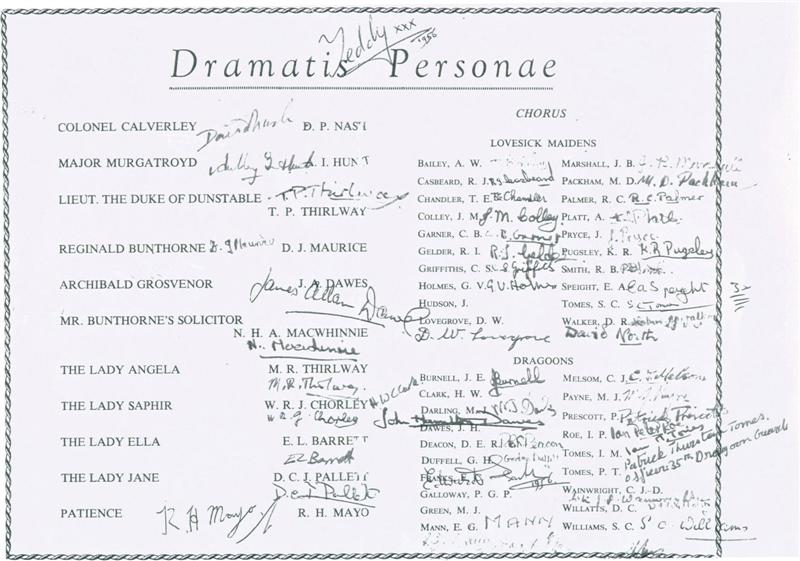 Teddy xxx
1956
Dramatis Personae
COLONEL CALVERLEY D. P. NASH
MAJOR MURGATROYD I. HUNT
LIEUT. THE DUKE OF DUNSTABLE T.P. Thirlway
T. P. THIRLWAY
REGINALD BUNTHORNE D. J. MAURICE
ARCHIBALD GROSVENOR J. A. DAWES
James Allan Dawes
MR. BUNTHORNE'S SOLICITOR
N. H. A. MACWHINNIE
N. Macwhinnie
THE LADY ANGELA M. R. THIRLWAY
M.R. Thirlway
THE LADY SAPHIR W. R. J. CHORLEY
W. R. J. Chorley
THE LADY ELLA E. L. BARRETT
EL Barrett
THE LADY JANE D. C. J. PALLETT
D.C.J. Pallett
PATIENCE R H Mayo R. H. MAYO
CHORUS
LOVESICK MAIDENS
BAILEY, A. W.
CASBEARD, R. J. RJ Casbeard
CHANDLER, T. E. Chandler
COLLEY, J. M. J. M. Colley
GARNER, C. B. C. B. Garner
GELDER, R. I. R. I. Gelder
GRIFFITHS, C. S.
HOLMES, G. V. G V. Holmes
HUDSON, J.
LOVEGROVE, D. W.
D. W. Lovegrove
MARSHALL, J. B.
PACKHAM, M. D. M. D. Packham
PALMER, R. C. R. C. Palmer
PLATT, A.
PRYCE, J. J. Pryce
PUGSLEY, K. R. K.R Pugsley
SMITH, R. B.
SPEIGHT, E. A. E A Speight
TOMES, S. C. S C Tomes
WALKER, D. R.
David North
DRAGOONS
BURNELL, J. E. Burnell
CLARK, H. W. H W Clark
DARLING, M. J. M J Darling
DAWES, J. H. John Hamilton Dawes
DEACON, D. E. R. Deacon
DUFFELL, G. H.
Edward 1956
GALLOWAY, P. G. P.
GREEN, M. J.
MANN, E. G. MANN
MELSOM, C. J. C. J. Melsom
PAYNE, M. J.
PRESCOTT, P. Patrick Prescott
ROE, I. P. Ian Peter Roe
TOMES, I. M. Ian M Tomes
TOMES, P. T. Patrick Thurstan Tomes.
Officer 35th Dragoon Guards
WAINWRIGHT, C. J. D.
WILLATTS, D. C.
WILLIAMS, S. C. S C Williams